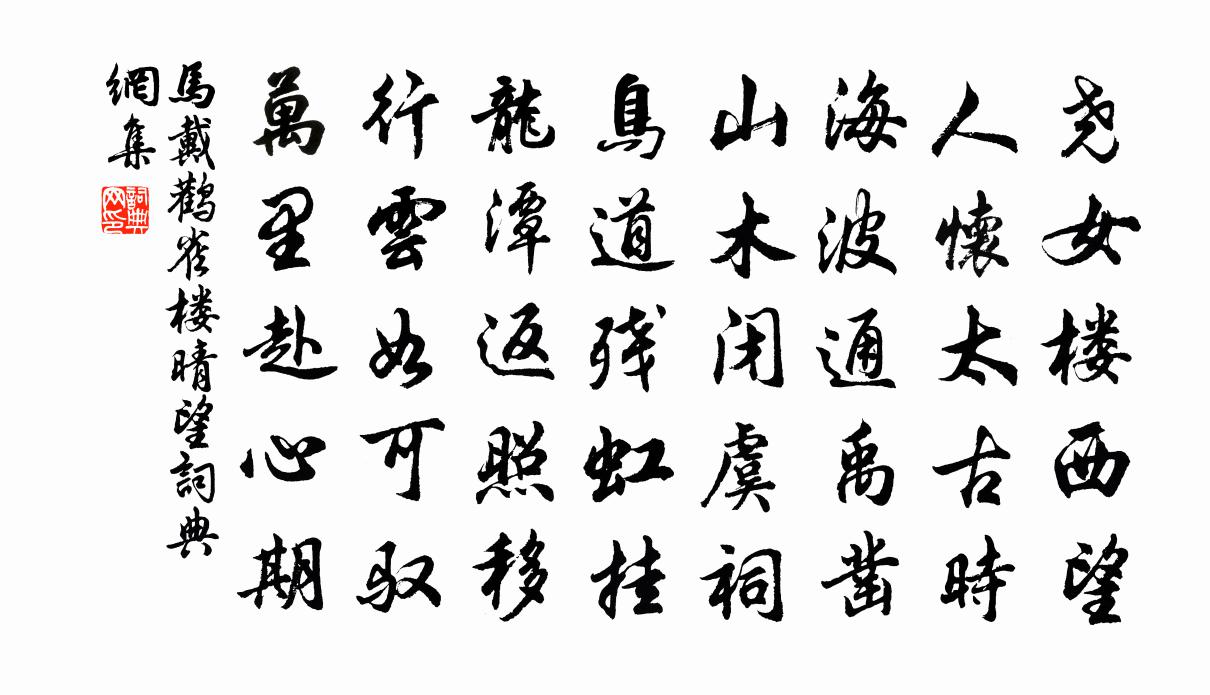 尧女楼西望
人懷太古時
海波通禹凿
山木闭虞祠
鳥道残虹挂
龍潭返照移
行雲如可驭
萬里赴心期
馬戴鹳雀楼晴望詞典
網集
詞典
网印